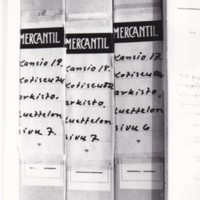 MERCANTIL
Kansio 19.
Kotiseutu
arkisto.
Luettelon
sivu 7.
MERCANTIL
Kansio 18.
Kotiseutu
arkisto,
Luettelon
sivu 7.
MERCANTIL
Kansio 17.
Kotiseutu
arkisto,
Luettelon
sivu 6